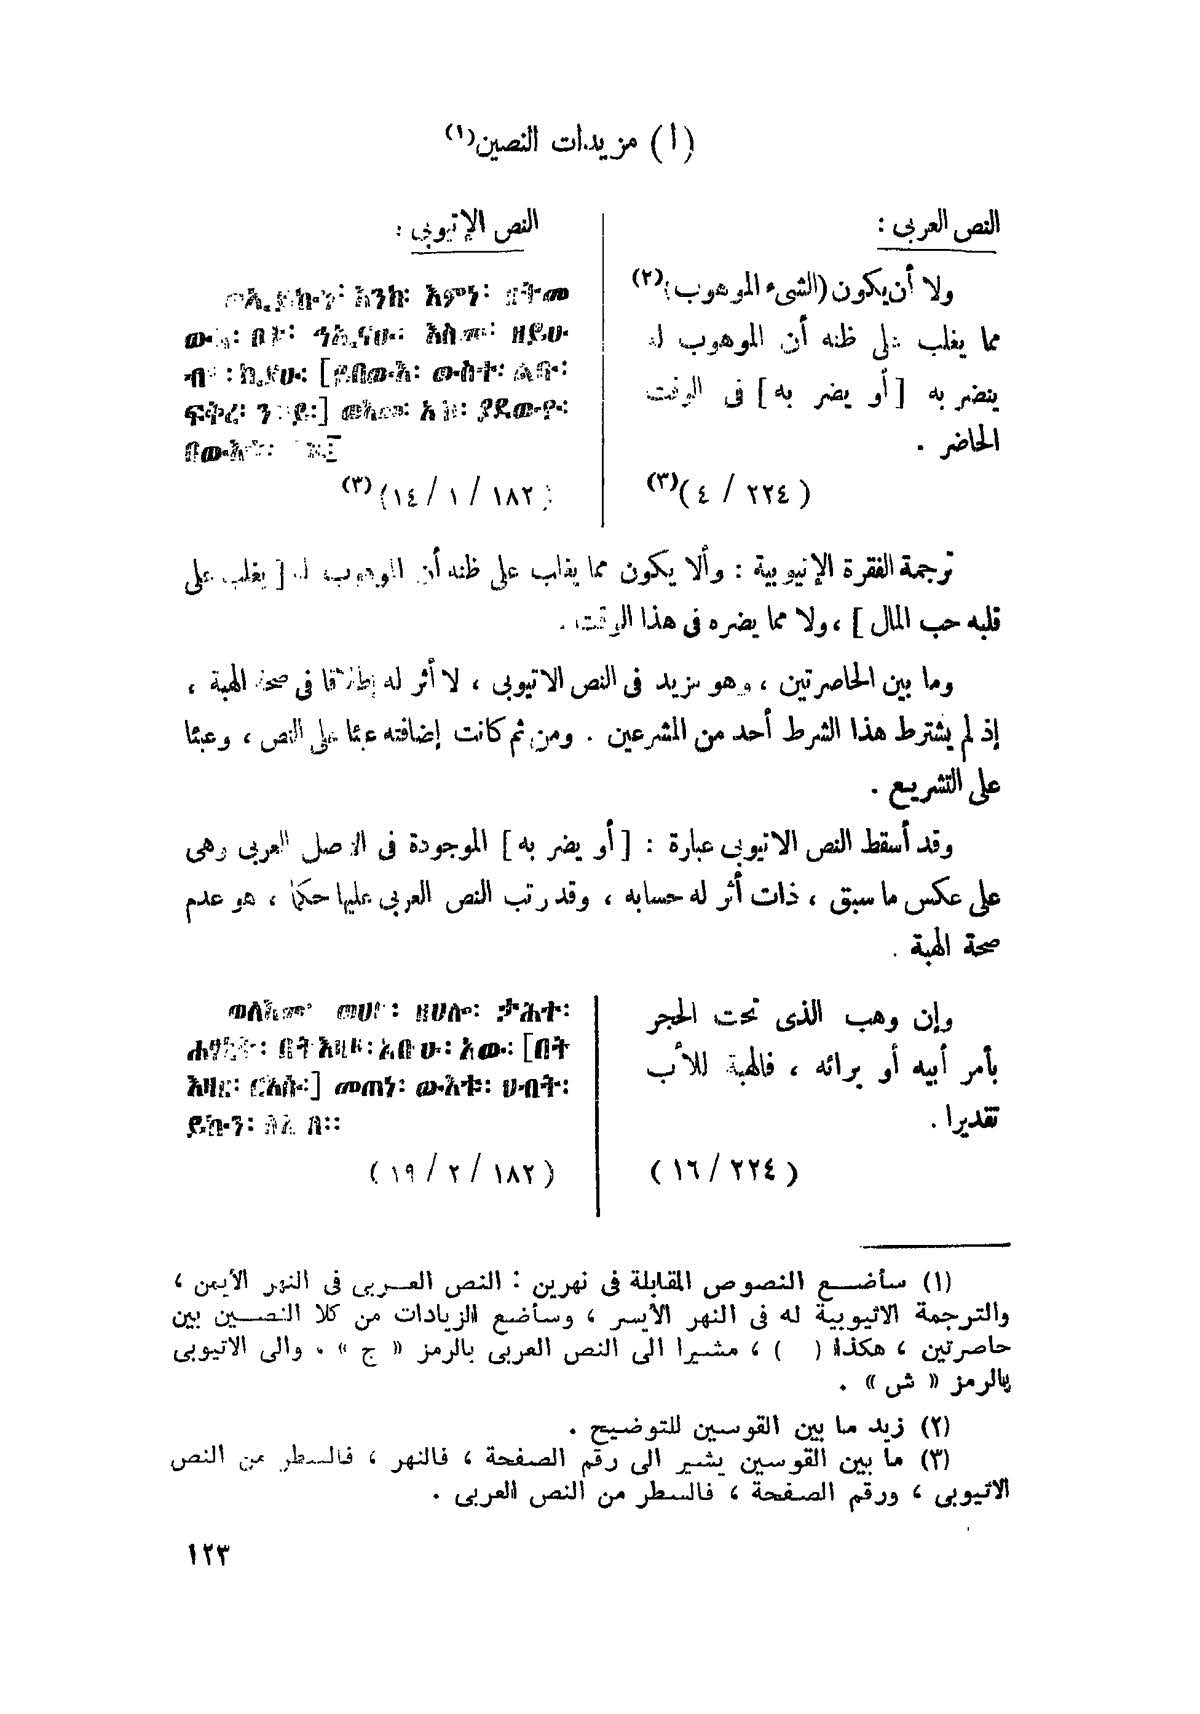 (أ) مزيدات النصين(١)
النص العربى :
ولا أن يكون (الشىء الموهوب)(٢)
مما يغلب على ظنه أن الموهوب له
ينضر به [أو يضر به] فى الوقت
الحاضر .
(٢٢٤ / ٤)(٣)
النص الإتيوبى :
እንከ፡ እምነ፡ ዘትመ
እስመ፡ ዘይሁ
[ይበውእ፡ ውስተ፡ ልቡ፡
ፍቅረ፡ ንዋይ፡] ወእመ፡
(١٨٢ / ١ / ١٤)(٣)
ترجمة الفقرة الإتيوبية : وألا يكون مما يغلب على ظنه أن الموهوب له [يغلب على
قلبه حب المال] ، ولا مما يضره فى هذا الوقت .
وما بين الحاصرتين ، وهو مزيد فى النص الاتيوبى ، لا أثر له إطلاقا فى صحة الهبة ،
إذ لم يشترط هذا الشرط أحد من المشرعين . ومن ثم كانت إضافته عبئا على النص ، وعبئا
على التشريع .
وقد أسقط النص الاتيوبى عبارة : [أو يضر به] الموجودة فى الاصل العربى وهى
على عكس ما سبق ، ذات أثر له حسابه ، وقد رتب النص العربى عليها حكما ، هو عدم
صحة الهبة .
وإن وهب الذى تحت الحجر
بأمر أبيه أو برائه ، فالهبة للأب
تقديرا .
(٢٢٤ / ١٦)
ወለእመ ወሀበ፡ ዘሀሎ፡ ታሕተ፡
በትእዛዘ፡ አቡሁ፡ አው፡ [በት
እዛዘ፡ ርእሱ፡] መጠነ፡ ውእቱ፡ ሀብት፡
ይኩን፡ ለአብ።
(١٨٢ / ٢ / ١٩)
(١) سأضع النصوص المقابلة فى نهرين : النص العربى فى النهر الأيمن ،
والترجمة الاثيوبية له فى النهر الأيسر ، وسأضع الزيادات من كلا النصين بين
حاصرتين ، هكذا ( ) ، مشيرا الى النص العربى بالرمز « ج » . والى الاتيوبى
بالرمز « ش » .
(٢) زيد ما بين القوسين للتوضيح .
(٣) ما بين القوسين يشير الى رقم الصفحة ، فالنهر ، فالسطر من النص
الاتيوبى ، ورقم الصفحة ، فالسطر من النص العربى .
١٢٣